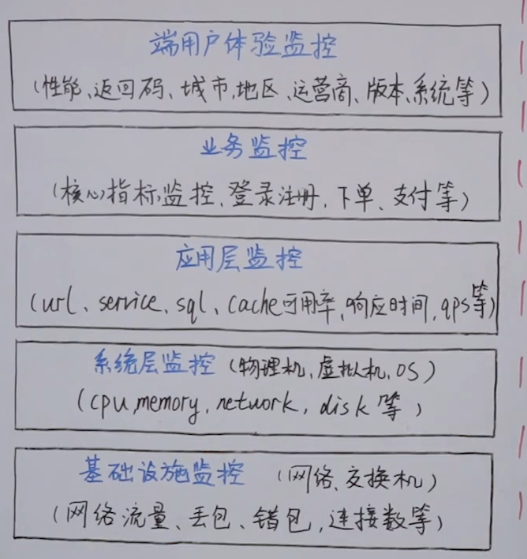 端用户体验监控
(性能、返回码、城市、地区、运营商、版本、系统等)
业务监控
(核心指标监控、登录注册、下单、支付等)
应用层监控
(url、service、sql、cache可用率,响应时间,qps等)
系统层监控 (物理机,虚拟机,OS)
(cpu,memory,network,disk等)
基础设施监控 (网络、交换机)
(网络流量、丢包、错包,连接数等)